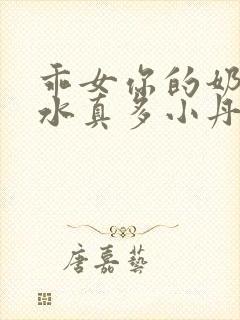 乖女你的奶
水真多小丹
唐嘉艺